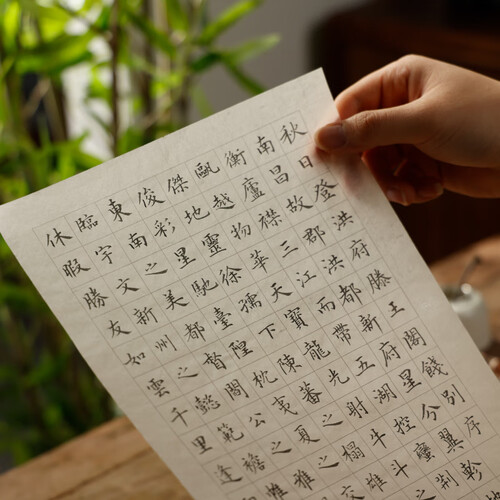 秋日登洪府滕王閣餞別序
南昌故郡洪都新府星分翼軫
衡廬襟三江而帶五湖控蠻荊
甌越物華天寶龍光射牛斗之
傑地靈徐孺下陳蕃之榻雄
俊彩星馳臺隍枕夷夏之
東南之美都督閻公之雅
臨宇文新州之懿範襜
休暇勝友如雲千里逢